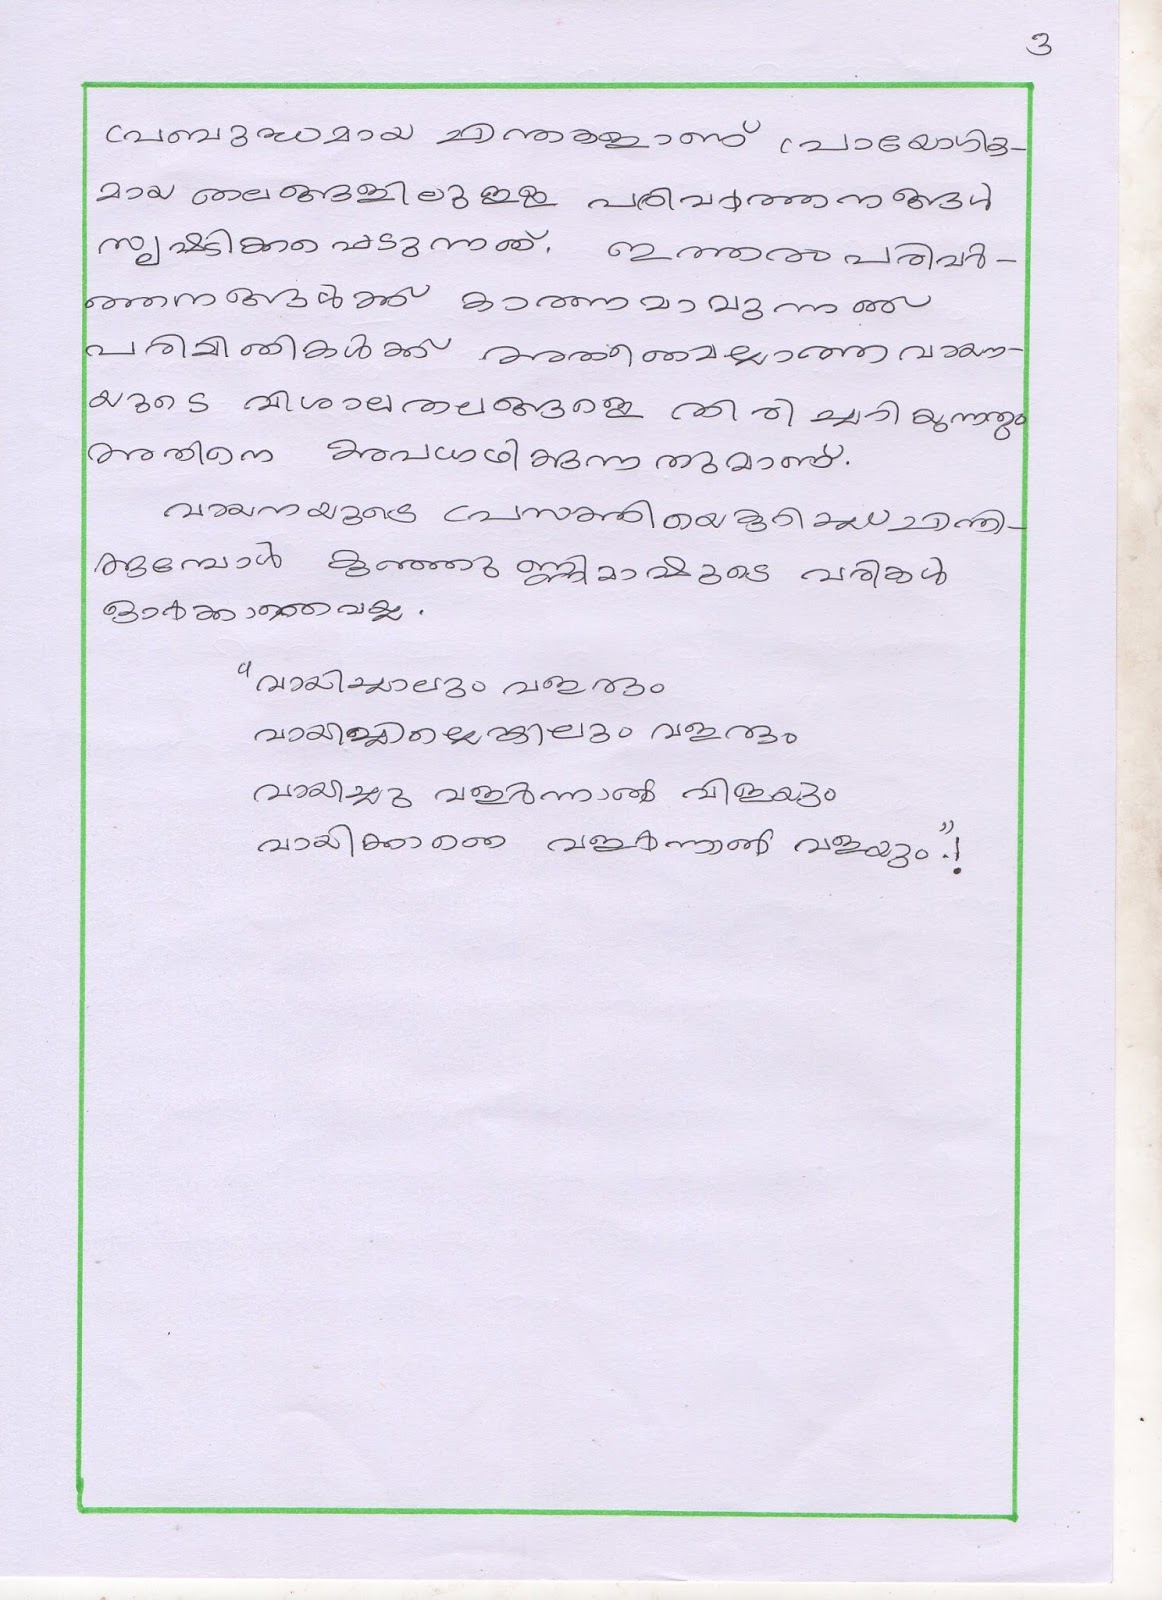 3
പ്രബുദ്ധമായ ചിന്തകളാണ് പ്രായോഗിക-
മായ തലങ്ങളിലുള്ള പരിവർത്തനങ്ങൾ
സൃഷ്ടിക്കപ്പെടുന്നത്. ഇത്തരം പരിവർ-
ത്തനങ്ങൾക്ക് കാരണമാവുന്നത്
പരിമിതികൾക്ക് അതീതമല്ലാത്ത വായന-
യുടെ വിശാലതലങ്ങളെ തിരിച്ചറിയുന്നതും
അതിനെ അപഗ്രഥിക്കുന്നതുമാണ്.
വായനയുടെ പ്രസക്തിയെകുറിച്ച് ചിന്തി-
ക്കുമ്പോൾ കുഞ്ഞുണ്ണിമാഷുടെ വരികൾ
ഓർക്കാതെവയ്യ.
"വായിച്ചാലും വളരും
വായിച്ചില്ലെങ്കിലും വളരും
വായിച്ചു വളർന്നാൽ വിളയും
വായിക്കാതെ വളർന്നാൽ വളയും."!